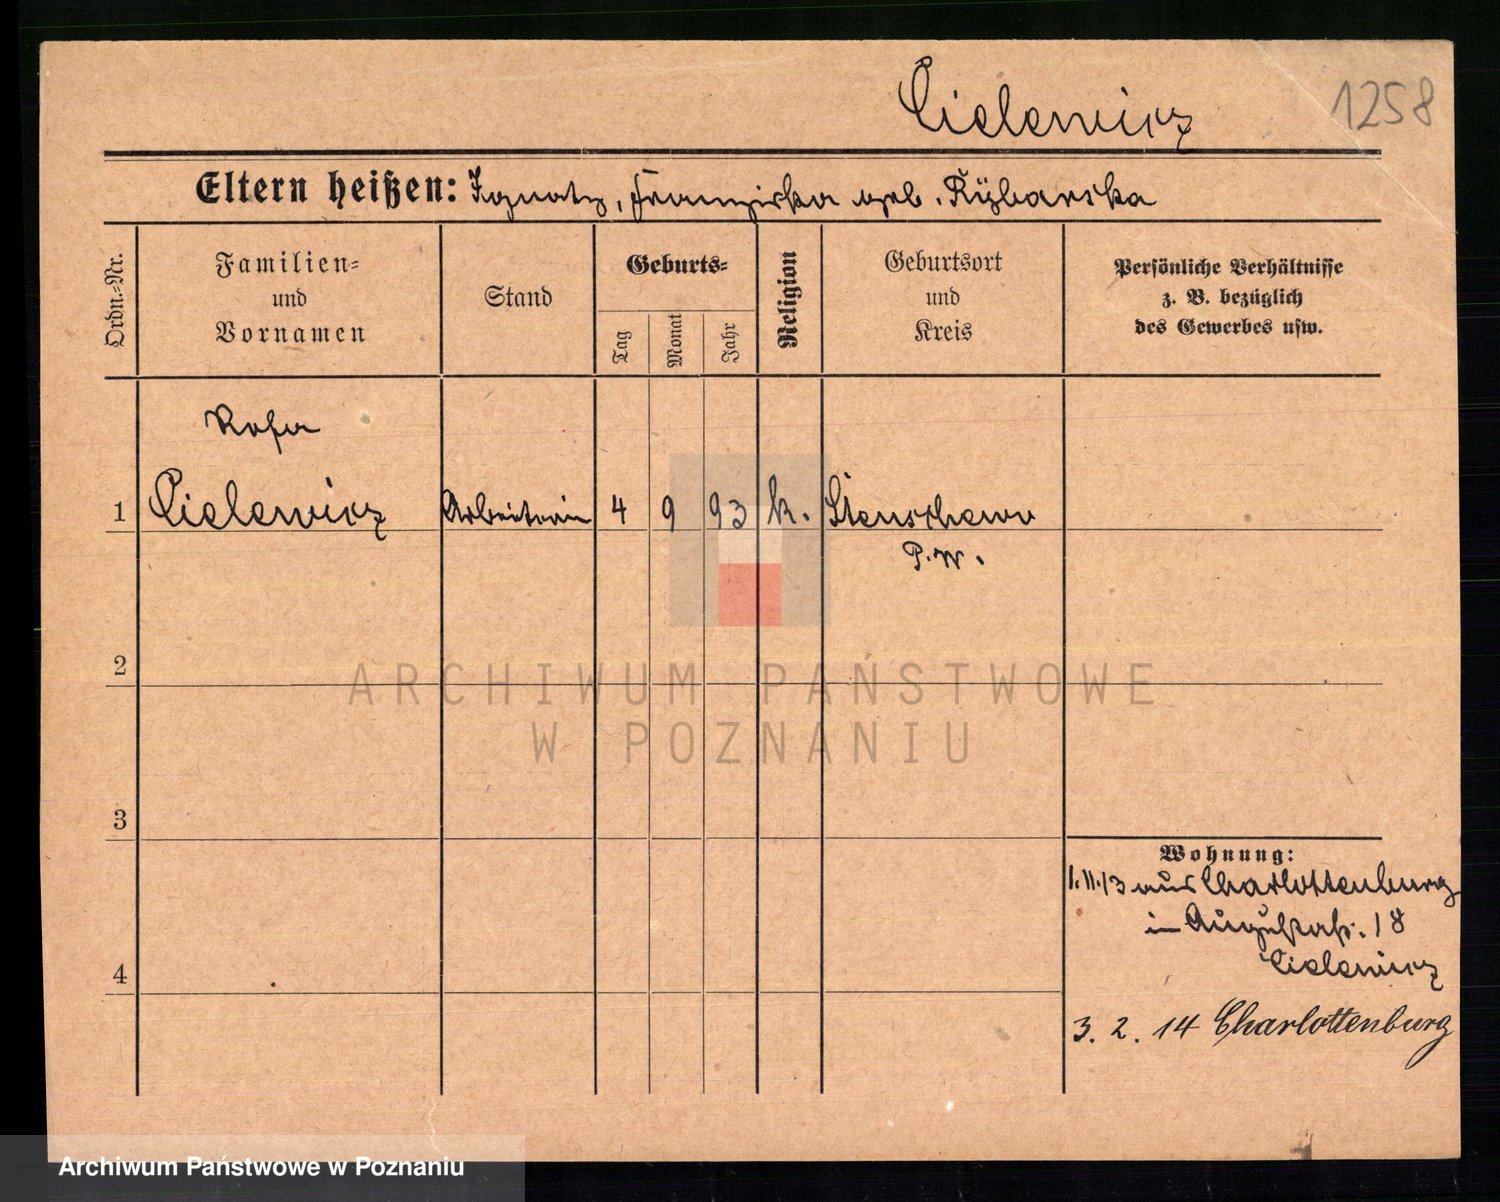 Cielewicz
1258
Eltern heißen: Ignatz, Franziska geb. Rÿbarska
Ordn.-Nr.
Familien-
und
Vornamen
Stand
Geburts-
Tag
Monat
Jahr
Religion
Geburtsort
und
Kreis
Persönliche Verhältnisse
z. B. bezüglich
des Gewerbes usw.
Rosa
1 Cielewicz Arbeiterin 4 9 93 k. Stenschewo
P. W.
2
ARCHIWUM PAŃSTWOWE
W POZNANIU
3
Wohnung:
1.11.13 aus Charlottenburg
in Augustastr. 18
Cielewicz
4
3. 2. 14 Charlottenburg
Archiwum Państwowe w Poznaniu